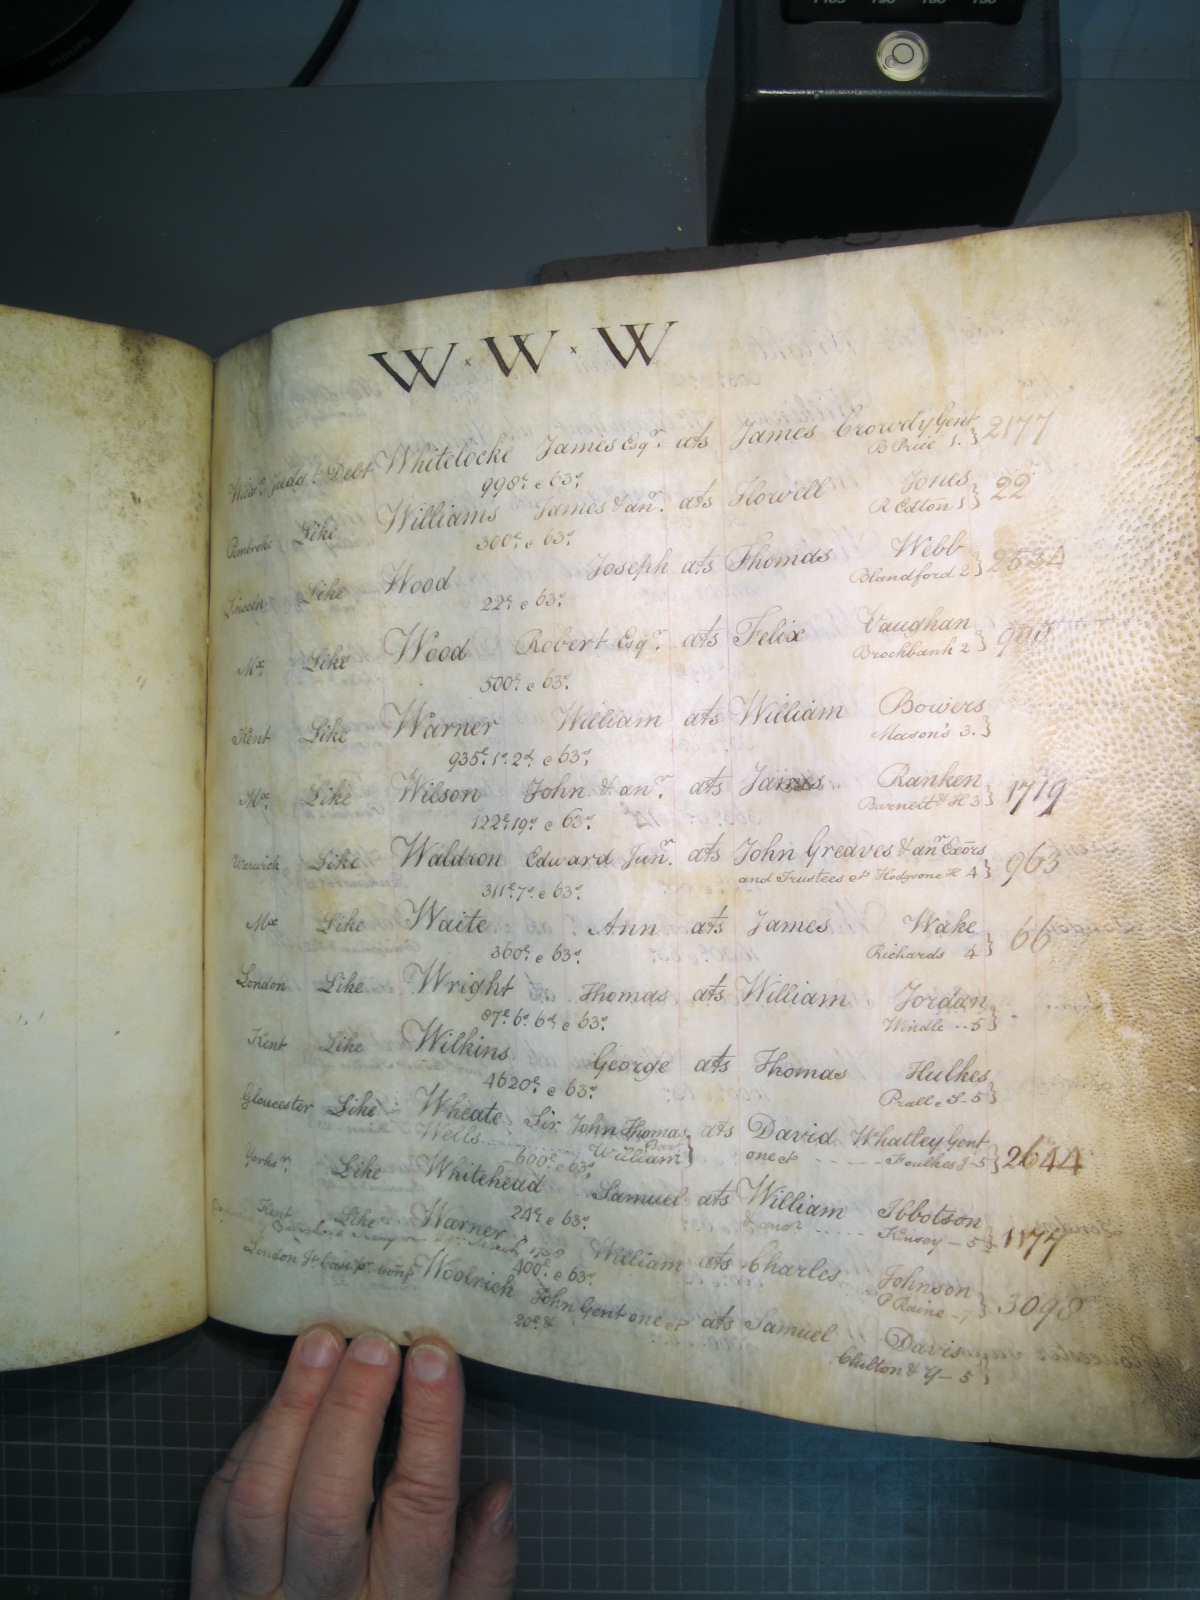 W · W · W
Wilts Judgt. Debt Whitelocke James Esqr. ats James Crowdy Gent } 2177
998£ e 63s B Price 1.
Pembroke Like Williams James & anr. ats Howell Jones } 22
300£ e 63s R Edton 1
Lincoln Like Wood Joseph ats Thomas Webb } 2534
22£ e 63s Blandford 2
Mx Like Wood Robert Esqr. ats Felix Vaughan }
500£ e 63s Brockbank 2
Kent Like Warner William ats William Bowers }
935£.1s.2d. e 63s Mason's 3.
Mx Like Wilson John & anr. ats James Ranken } 1719
122£19s e 63s Barnett & H 3
Warwick Like Waldron Edward Junr. ats John Greaves & anr Exors } 963
311£.7s e 63s and Trustees et Hodgsone H 4
Mx Like Waite Ann ats James Wake } 66
360£ e 63s Richards 4
London Like Wright Thomas ats William Jordan }
87£.6s.6d e 63s Windle -- 5
Kent Like Wilkins George ats Thomas Hulkes }
4620£ e 63s Prall e S - 5
Gloucester Like Wheate Sir John Thomas Bart ats David Whatley Gent } 2644
Wells William } one et - - - - Foulkes & - 5
600£ e 63s
Yorksr. Like Whitehead Samuel ats William Ibbotson } 1177
24£ e 63s & anor ..... Kinsey - 5
Kent Like Warner William ats Charles Johnson } 3098
400£ e 63s P Raine - 7
London Woolrich John Gent one et ats Samuel Davis }
20£ & Chilton & Y - 5